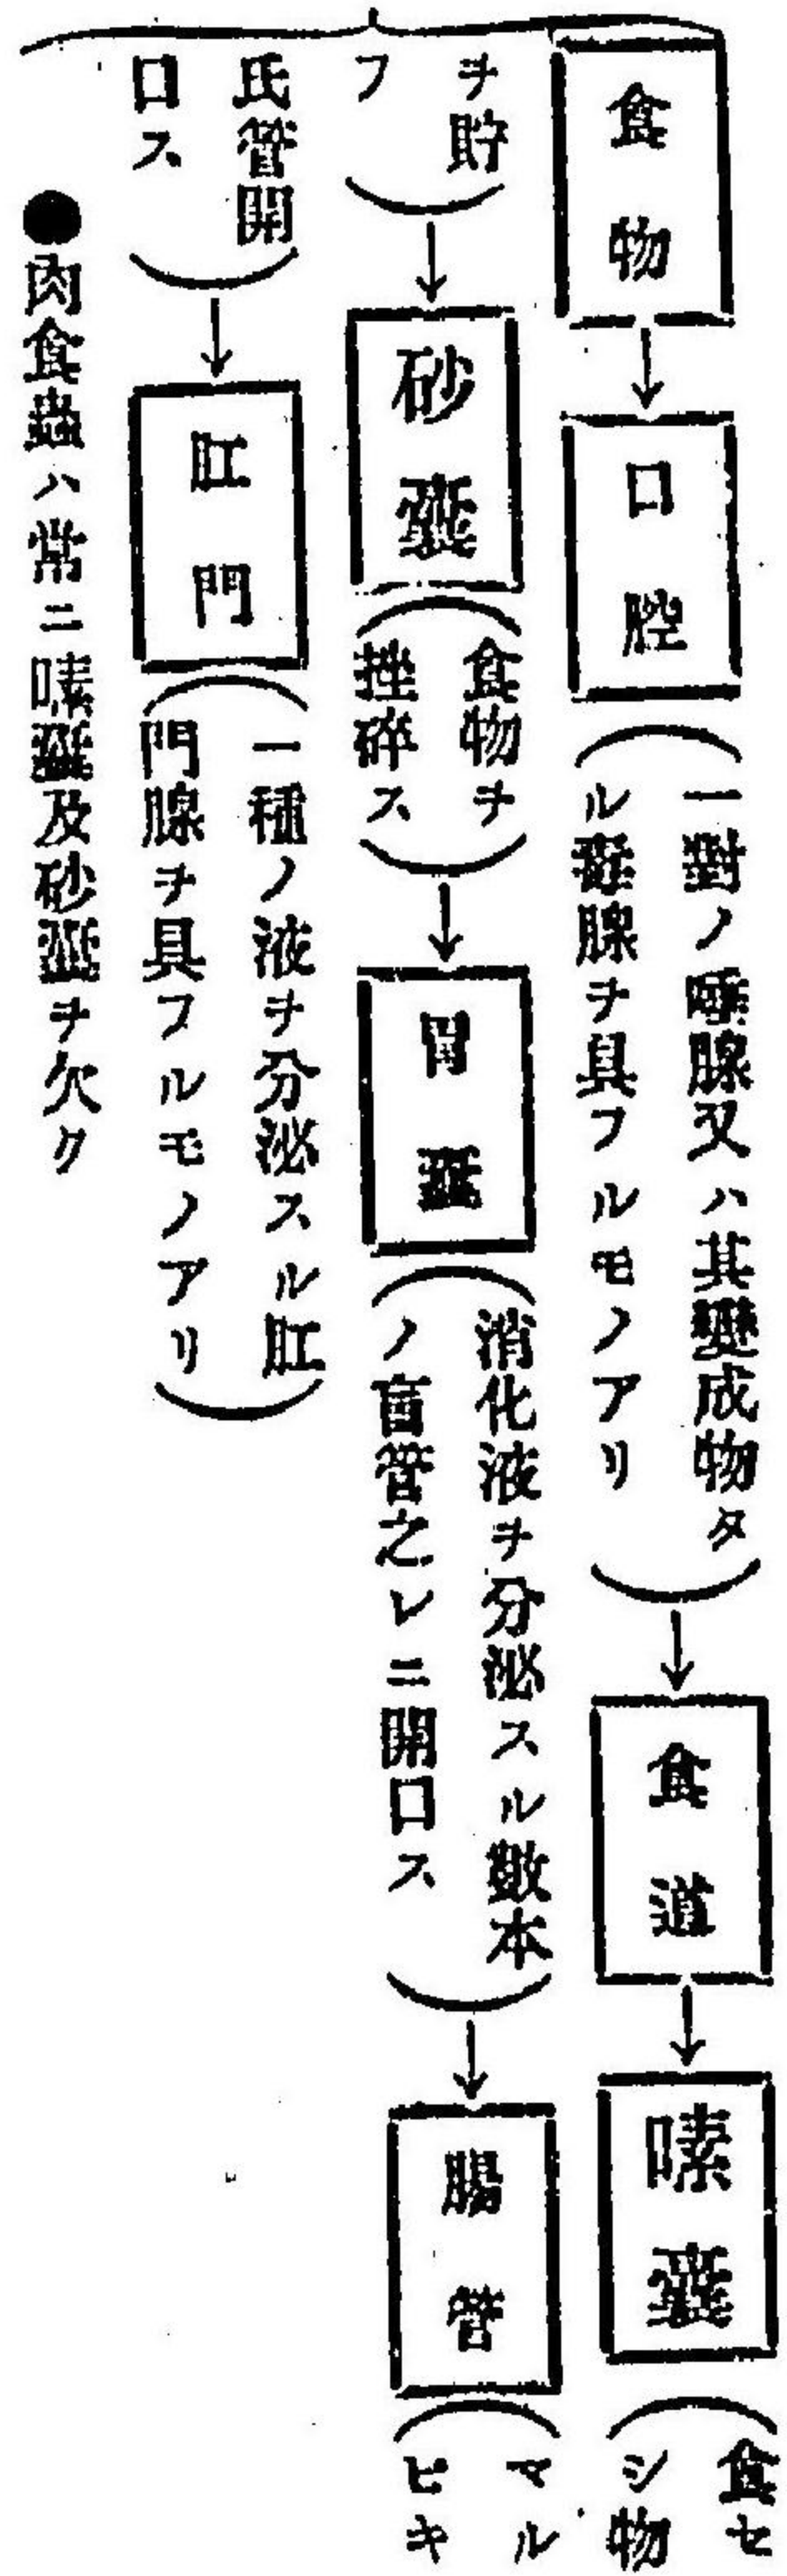 食物
→
口腔
(一對ノ唾腺又ハ其變成物タ
ル毒腺ヲ具フルモノアリ)
→
食道
→
嗉囊
(食セ
シ物
ヲ貯
フ)
→
砂囊
(食物ヲ
挫碎ス)
→
胃囊
(消化液ヲ分泌スル數本
ノ盲管之レニ開口ス)
→
腸管
(マル
ピキ
氏管開
口ス)
→
肛門
(一種ノ液ヲ分泌スル肛
門腺ヲ具フルモノアリ)
●肉食蟲ハ常ニ嗉囊及砂囊ヲ欠ク